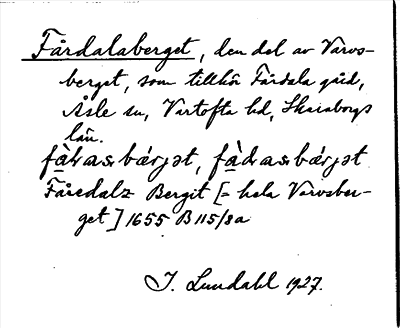 Fårdalaberget, den del av Varvs-
berget, som tillhör Fårdala gård,
Åsle sn, Vartofta hd, Skaraborgs
län.
fàʀ̣asbǽrjət, fàdasbǽrjət
Fåredalz Bergit [= hela Varvsber-
get] 1655 B 115/8a
I. Lundahl 1927.